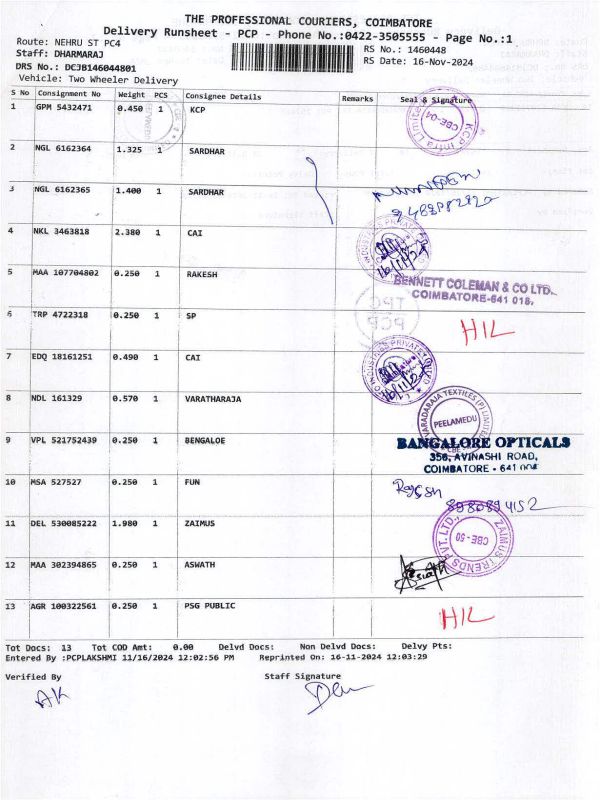 THE PROFESSIONAL COURIERS, COIMBATORE
Delivery Runsheet - PCP - Phone No.:0422-3505555 - Page No.:1
Route: NEHRU ST PC4
RS No.: 1460448
Staff: DHARMARAJ
RS Date: 16-Nov-2024
DRS No.: DCJB146044801
Vehicle: Two Wheeler Delivery
S No Consignment No Weight PCS Consignee Details Remarks Seal & Signature
1 GPM 5432471 0.450 1 KCP
KCP Infra Limited CBE-04
2 NGL 6162364 1.325 1 SARDHAR
3 NGL 6162365 1.400 1 SARDHAR
4 NKL 3463818 2.380 1 CAI
INDUSTRIES PRIVATE
16/11/24
5 MAA 107704802 0.250 1 RAKESH
BENNETT COLEMAN & CO LTD.
COIMBATORE-641 018.
6 TRP 4722318 0.250 1 SP
HIL
7 EDQ 18161251 0.490 1 CAI
INDUSTRIES PRIVATE LIMITED
16/11/24
8 NDL 161329 0.570 1 VARATHARAJA
VARADARAJA TEXTILES (P) LIMITED
PEELAMEDU
9 VPL 521752439 0.250 1 BENGALOE
BANGALORE OPTICALS
356, AVINASHI ROAD,
COIMBATORE - 641 004
10 MSA 527527 0.250 1 FUN
8980894152
11 DEL 530085222 1.980 1 ZAIMUS
ZAIMUS TRENDS PVT.LTD.
CBE-50
12 MAA 302394865 0.250 1 ASWATH
13 AGR 100322561 0.250 1 PSG PUBLIC
HIL
Tot Docs: 13 Tot COD Amt: 0.00 Delvd Docs: Non Delvd Docs: Delvy Pts:
Entered By :PCPLAKSHMI 11/16/2024 12:02:56 PM Reprinted On: 16-11-2024 12:03:29
Verified By Staff Signature
AK